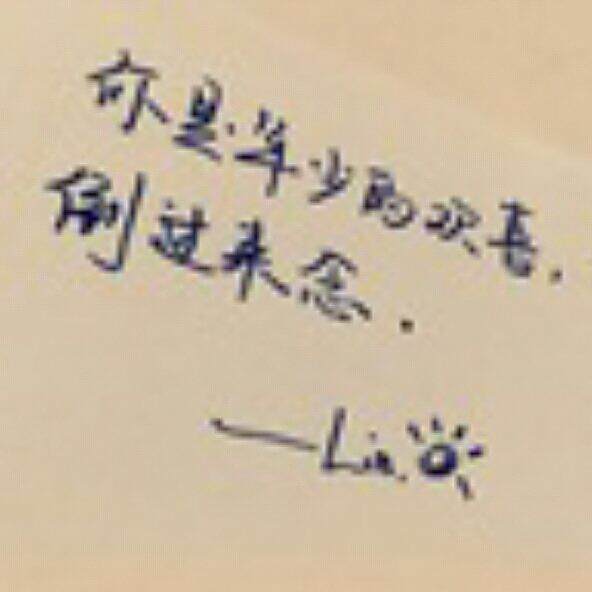 你是年少的欢喜，
倒过来念．
—Lin.